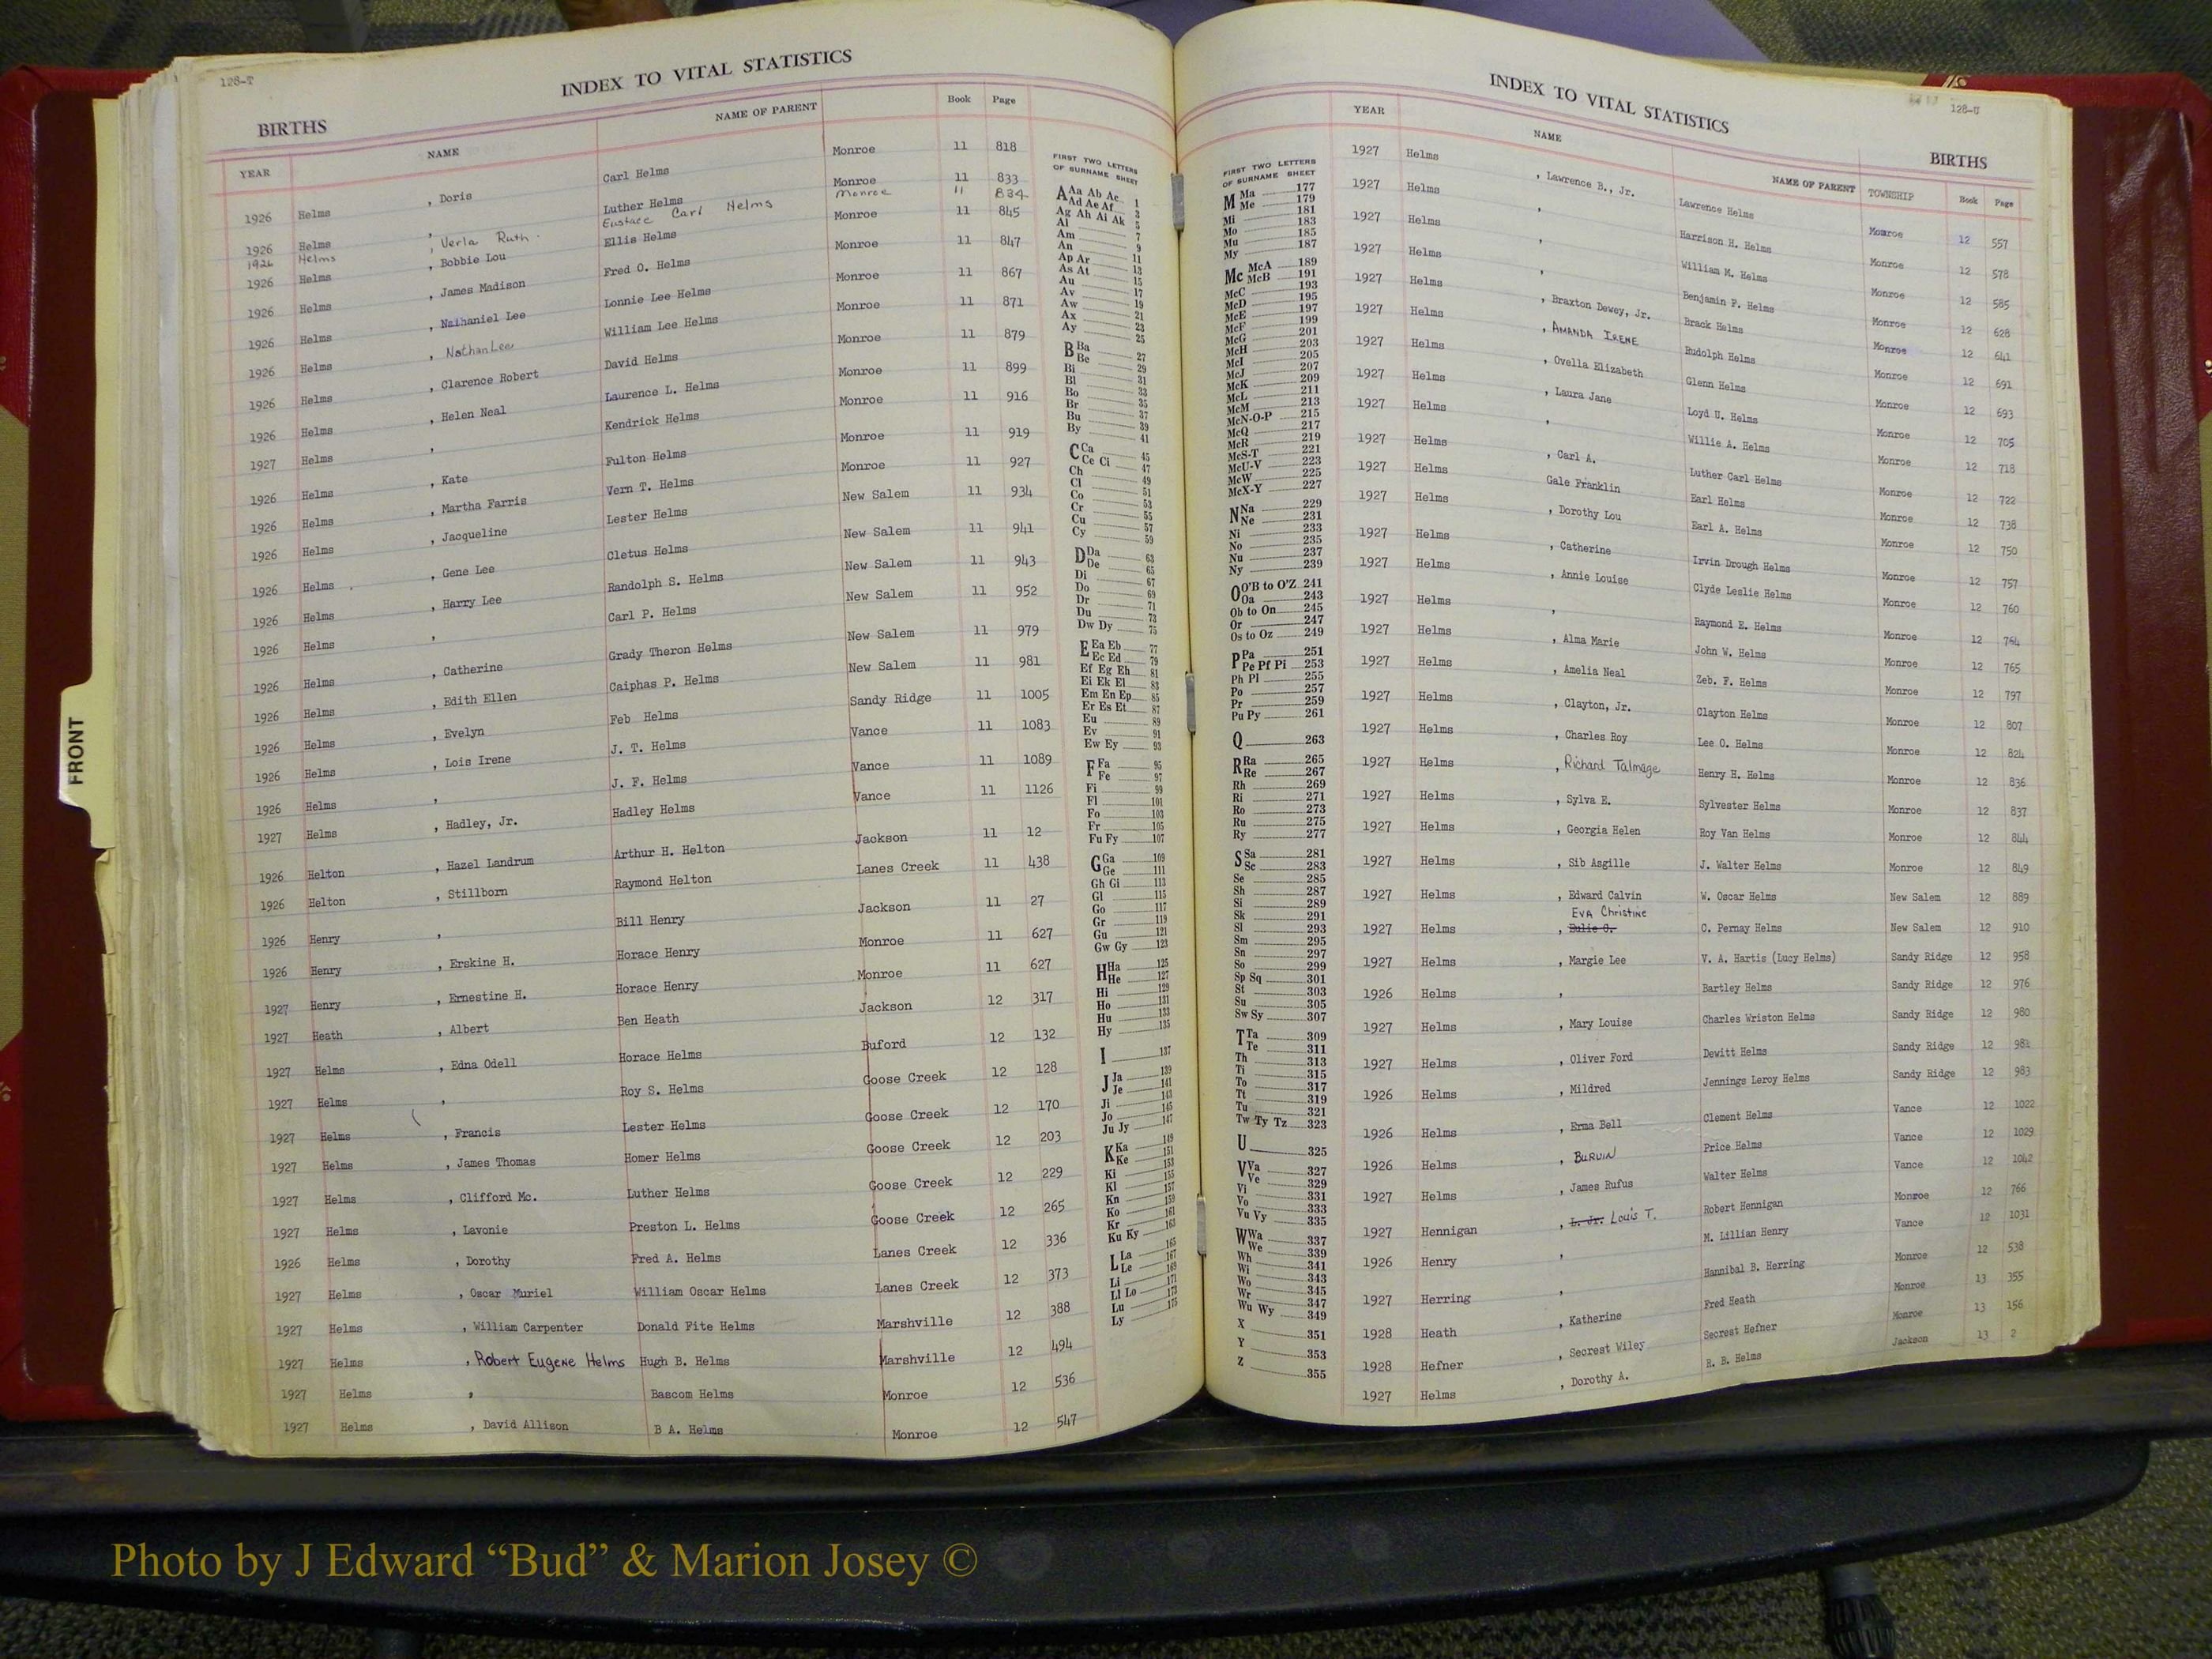 128-T
INDEX TO VITAL STATISTICS
BIRTHS
YEAR NAME NAME OF PARENT Book Page
1926 Helms , Doris Carl Helms Monroe 11 818
1926 Helms , Luther Helms Monroe 11 833
1926 Helms , Verla Ruth Eustace Carl Helms Monroe 11 834
1926 Helms , Bobbie Lou Ellis Helms Monroe 11 845
1926 Helms , James Madison Fred O. Helms Monroe 11 847
1926 Helms , Nathaniel Lee Lonnie Lee Helms Monroe 11 867
1926 Helms , Nathan Lee William Lee Helms Monroe 11 871
1926 Helms , Clarence Robert David Helms Monroe 11 879
1926 Helms , Helen Neal Laurence L. Helms Monroe 11 899
1927 Helms , Kendrick Helms Monroe 11 916
1926 Helms , Kate Fulton Helms Monroe 11 919
1926 Helms , Martha Farris Vern T. Helms Monroe 11 927
1926 Helms , Jacqueline Lester Helms New Salem 11 934
1926 Helms , Gene Lee Cletus Helms New Salem 11 941
1926 Helms , Harry Lee Randolph S. Helms New Salem 11 943
1926 Helms , Carl P. Helms New Salem 11 952
1926 Helms , Catherine Grady Theron Helms New Salem 11 979
1926 Helms , Edith Ellen Caiphas P. Helms New Salem 11 981
1926 Helms , Evelyn Feb Helms Sandy Ridge 11 1005
1926 Helms , Lois Irene J. T. Helms Vance 11 1083
1926 Helms , J. F. Helms Vance 11 1089
1927 Helms , Hadley, Jr. Hadley Helms Vance 11 1126
1926 Helton , Hazel Landrum Arthur H. Helton Jackson 11 12
1926 Helton , Stillborn Raymond Helton Lanes Creek 11 438
1926 Henry , Bill Henry Jackson 11 27
1926 Henry , Erskine H. Horace Henry Monroe 11 627
1927 Henry , Ernestine H. Horace Henry Monroe 11 627
1927 Heath , Albert Ben Heath Jackson 12 317
1927 Helms , Edna Odell Horace Helms Buford 12 132
1927 Helms , Roy S. Helms Goose Creek 12 128
1927 Helms , Francis Lester Helms Goose Creek 12 170
1927 Helms , James Thomas Homer Helms Goose Creek 12 203
1927 Helms , Clifford Mc. Luther Helms Goose Creek 12 229
1927 Helms , Lavonie Preston L. Helms Goose Creek 12 265
1926 Helms , Dorothy Fred A. Helms Lanes Creek 12 336
1927 Helms , Oscar Muriel William Oscar Helms Lanes Creek 12 373
1927 Helms , William Carpenter Donald Fite Helms Marshville 12 388
1927 Helms , Robert Eugene Helms Hugh B. Helms Marshville 12 494
1927 Helms , Bascom Helms Monroe 12 536
1927 Helms , David Allison B A. Helms Monroe 12 547
FIRST TWO LETTERS
OF SURNAME SHEET
A Aa Ab Ac 1
Ad Ae Af 3
Ag Ah Ai Ak 5
Al 7
Am 9
An 11
Ap Ar 13
As At 15
Au 17
Av 19
Aw 21
Ax 23
Ay 25
B Ba 27
Be 29
Bi 31
Bl 33
Bo 35
Br 37
Bu 39
By 41
C Ca 45
Ce Ci 47
Ch 49
Cl 51
Co 53
Cr 55
Cu 57
Cy 59
D Da 63
De 65
Di 67
Do 69
Dr 71
Du 73
Dw Dy 75
E Ea Eb 77
Ec Ed 79
Ef Eg Eh 81
Ei Ek El 83
Em En Ep 85
Er Es Et 87
Eu 89
Ev 91
Ew Ey 93
F Fa 95
Fe 97
Fi 99
Fl 101
Fo 103
Fr 105
Fu Fy 107
G Ga 109
Ge 111
Gh Gi 113
Gl 115
Go 117
Gr 119
Gu 121
Gw Gy 123
H Ha 125
He 127
Hi 129
Ho 131
Hu 133
Hy 135
I 137
J Ja 139
Je 141
Ji 143
Jo 145
Ju Jy 147
K Ka 149
Ke 151
Ki 153
Kl 155
Kn 157
Ko 159
Kr 161
Ku Ky 163
L La 165
Le 167
Li 169
Ll Lo 171
Lu 173
Ly 175
128-U
INDEX TO VITAL STATISTICS
BIRTHS
FIRST TWO LETTERS
OF SURNAME SHEET
M Ma 177
Me 179
Mi 181
Mo 183
Mu 185
My 187
Mc McA 189
McB 191
McC 193
McD 195
McE 197
McF 199
McG 201
McH 203
McI 205
McJ 207
McK 209
McL 211
McM 213
McN-O-P 215
McQ 217
McR 219
McS-T 221
McU-V 223
McW 225
McX-Y 227
N Na 229
Ne 231
Ni 233
No 235
Nu 237
Ny 239
O O'B to O'Z 241
Oa 243
Ob to On 245
Or 247
Os to Oz 249
P Pa 251
Pe Pf Pi 253
Ph Pl 255
Po 257
Pr 259
Pu Py 261
Q 263
R Ra 265
Re 267
Rh 269
Ri 271
Ro 273
Ru 275
Ry 277
S Sa 281
Sc 283
Se 285
Sh 287
Si 289
Sk 291
Sl 293
Sm 295
Sn 297
So 299
Sp Sq 301
St 303
Su 305
Sw Sy 307
T Ta 309
Te 311
Th 313
Ti 315
To 317
Tt 319
Tu 321
Tw Ty Tz 323
U 325
V Va 327
Ve 329
Vi 331
Vo 333
Vu Vy 335
W Wa 337
We 339
Wh 341
Wi 343
Wo 345
Wr 347
Wu Wy 349
X 351
Y 353
Z 355
YEAR NAME NAME OF PARENT TOWNSHIP Book Page
1927 Helms , Lawrence B., Jr. Lawrence Helms Monroe 12 557
1927 Helms , Harrison H. Helms Monroe 12 578
1927 Helms , William M. Helms Monroe 12 585
1927 Helms , Benjamin F. Helms Monroe 12 628
1927 Helms , Braxton Dewey, Jr. Brack Helms Monroe 12 641
1927 Helms , AMANDA IRENE Rudolph Helms Monroe 12 691
1927 Helms , Ovella Elizabeth Glenn Helms Monroe 12 693
1927 Helms , Laura Jane Loyd U. Helms Monroe 12 705
1927 Helms , Willie A. Helms Monroe 12 718
1927 Helms , Carl A. Luther Carl Helms Monroe 12 722
1927 Helms Gale Franklin Earl Helms Monroe 12 738
1927 Helms , Dorothy Lou Earl A. Helms Monroe 12 750
1927 Helms , Catherine Irvin Drough Helms Monroe 12 757
1927 Helms , Annie Louise Clyde Leslie Helms Monroe 12 760
1927 Helms , Raymond E. Helms Monroe 12 764
1927 Helms , Alma Marie John W. Helms Monroe 12 765
1927 Helms , Amelia Neal Zeb. F. Helms Monroe 12 797
1927 Helms , Clayton, Jr. Clayton Helms Monroe 12 807
1927 Helms , Charles Roy Lee O. Helms Monroe 12 824
1927 Helms , Richard Talmage Henry H. Helms Monroe 12 836
1927 Helms , Sylva E. Sylvester Helms Monroe 12 837
1927 Helms , Georgia Helen Roy Van Helms Monroe 12 844
1927 Helms , Sib Asgille J. Walter Helms Monroe 12 849
1927 Helms , Edward Calvin W. Oscar Helms New Salem 12 889
EVA Christine
1927 Helms , C. Pernay Helms New Salem 12 910
1927 Helms , Margie Lee V. A. Hartis (Lucy Helms) Sandy Ridge 12 958
1926 Helms , Bartley Helms Sandy Ridge 12 976
1927 Helms , Mary Louise Charles Wriston Helms Sandy Ridge 12 980
1927 Helms , Oliver Ford Dewitt Helms Sandy Ridge 12 981
1926 Helms , Mildred Jennings Leroy Helms Sandy Ridge 12 983
1926 Helms , Erma Bell Clement Helms Vance 12 1022
1926 Helms , BURVIN Price Helms Vance 12 1029
1927 Helms , James Rufus Walter Helms Vance 12 1042
1927 Hennigan , L. Jr. Louis T. Robert Hennigan Monroe 12 766
1926 Henry , M. Lillian Henry Vance 12 1031
1927 Herring , Hannibal B. Herring Monroe 12 538
1928 Heath , Katherine Fred Heath Monroe 13 355
1928 Hefner , Secrest Wiley Secrest Hefner Monroe 13 156
1927 Helms , Dorothy A. R. B. Helms Jackson 13 2
FRONT
Photo by J Edward “Bud” & Marion Josey ©